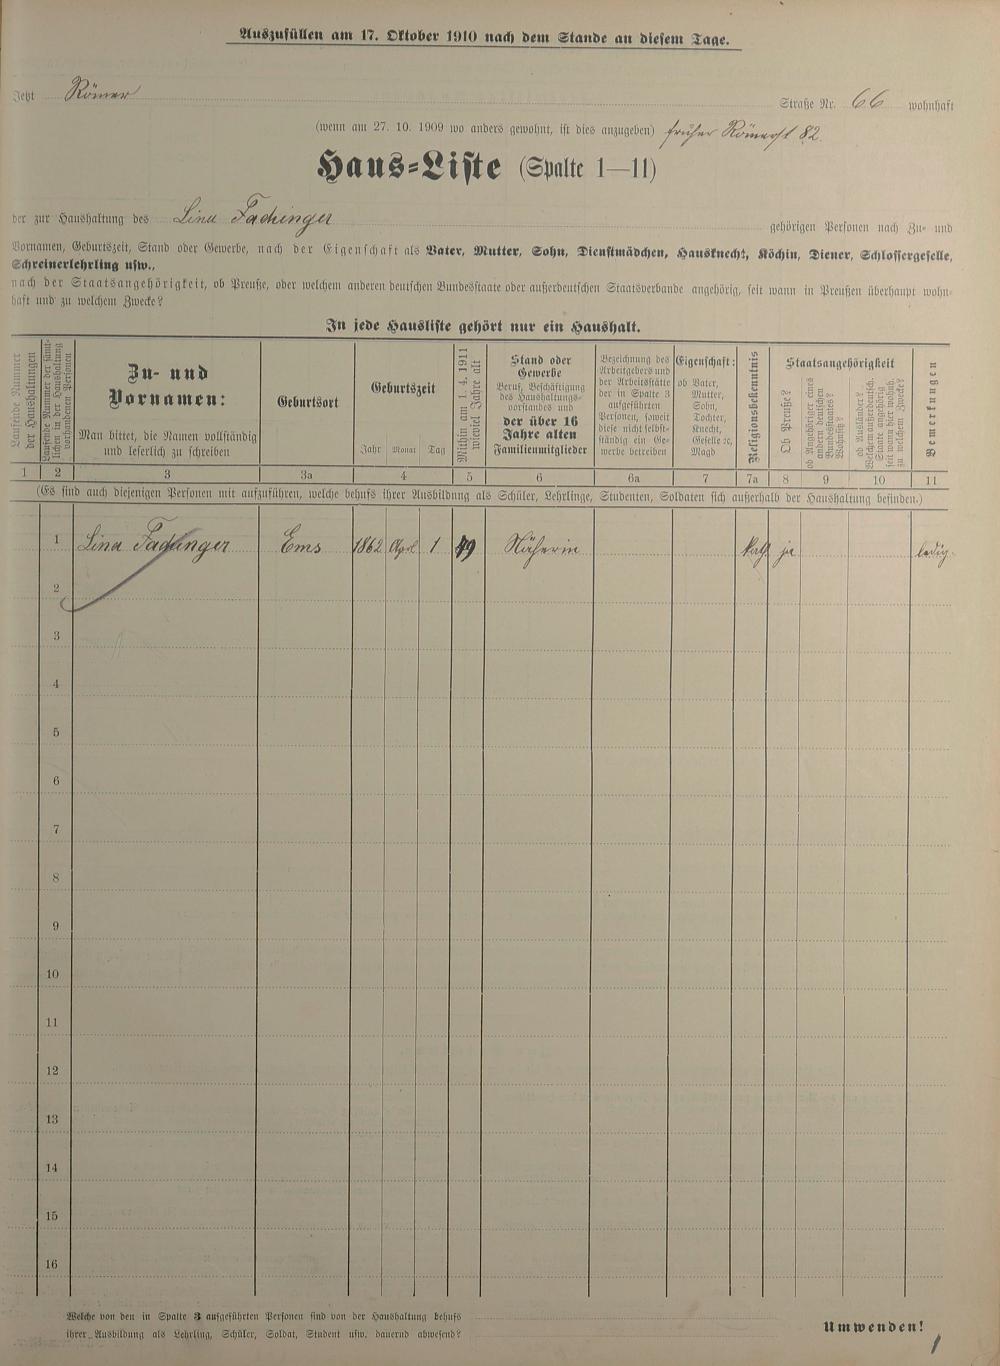 Auszufüllen am 17. Oktober 1910 nach dem Stande an diesem Tage.
Jetzt Römer Straße Nr. 66 wohnhaft
(wenn am 27. 10. 1909 wo anders gewohnt, ist dies anzugeben) früher Römerst 82.
Haus-Liste (Spalte 1—11)
der zur Haushaltung des Lina Fachinger gehörigen Personen nach Zu- und
Vornamen, Geburtszeit, Stand oder Gewerbe, nach der Eigenschaft als Vater, Mutter, Sohn, Dienstmädchen, Hausknecht, Köchin, Diener, Schlossergeselle,
Schreinerlehrling usw.,
nach der Staatsangehörigkeit, ob Preuße, oder welchem anderen deutschen Bundesstaate oder außerdeutschen Staatsverbande angehörig, seit wann in Preußen überhaupt wohn-
haft und zu welchem Zwecke?
In jede Hausliste gehört nur ein Haushalt.
Laufende Nummer
der Haushaltungen
Laufende Nummer der sämt-
lichen in der Haushaltung
vorhandenen Personen
Zu- und
Vornamen:
Man bittet, die Namen vollständig
und leserlich zu schreiben
Geburtsort
Geburtszeit
Jahr Monat Tag
Mithin am 1. 4. 1911
wieviel Jahre alt
Stand oder
Gewerbe
Beruf, Beschäftigung
des Haushaltungs-
vorstandes und
der über 16
Jahre alten
Familienmitglieder
Bezeichnung des
Arbeitgebers und
der Arbeitsstätte
der in Spalte 3
aufgeführten
Personen, soweit
diese nicht selbst-
ständig ein Ge-
werbe betreiben
Eigenschaft:
ob Vater,
Mutter,
Sohn,
Tochter,
Knecht,
Geselle ꝛc,
Magd
Religionsbekenntnis
Staatsangehörigkeit
Ob Preuße?
ob Angehöriger eines
andern deutschen
Bundesstaates?
Welches?
ob Ausländer?
Welchem außerdeutsch.
Staate angehörig
seit wann hier wohnh.
zu welchem Zwecke?
Bemerkungen
1 2 3 3a 4 5 6 6a 7 7a 8 9 10 11
(Es sind auch diejenigen Personen mit aufzuführen, welche behufs ihrer Ausbildung als Schüler, Lehrlinge, Studenten, Soldaten sich außerhalb der Haushaltung befinden.)
1 Lina Fachinger Ems 1862 April 1 49 Näherin kath. ja ledig.
2
3
4
5
6
7
8
9
10
11
12
13
14
15
16
Welche von den in Spalte 3 aufgeführten Personen sind von der Haushaltung behufs
ihrer Ausbildung als Lehrling, Schüler, Soldat, Student usw. dauernd abwesend?
Umwenden!
1